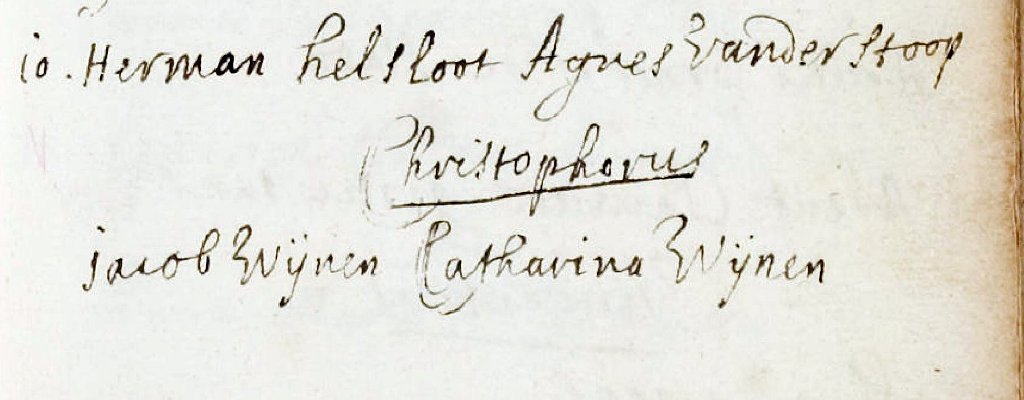 10. Herman helsloot Agnes Vanderstoop
Christophorus
jacob Wijnen Catharina Wijnen